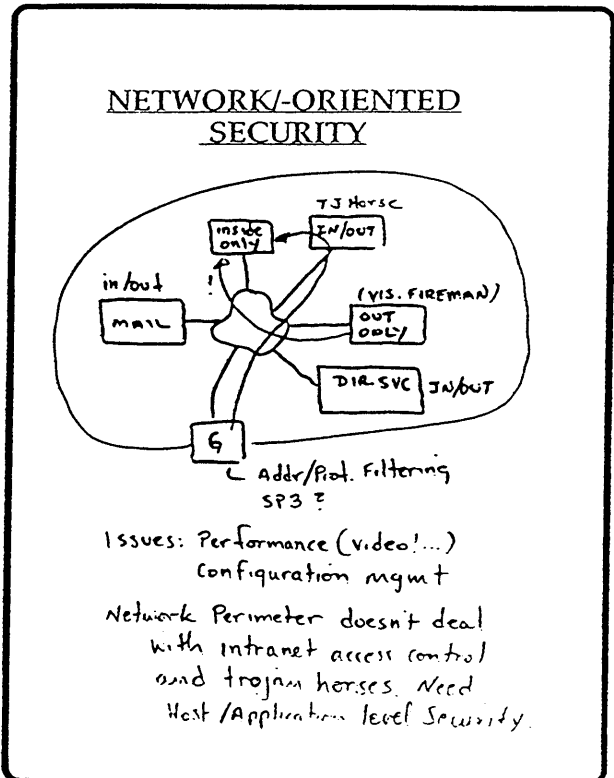 NETWORK/-ORIENTED
SECURITY
TJ Horse
inside
only
IN/OUT
in/out
!
(VIS. FIREMAN)
MAIL
OUT
ONLY
DIR SVC
IN/OUT
G
Addr/Prot. Filtering
SP3 ?
Issues: Performance (video!...)
Configuration mgmt
Network Perimeter doesn't deal
with intranet access control
and trojan horses. Need
Host/Application level Security.